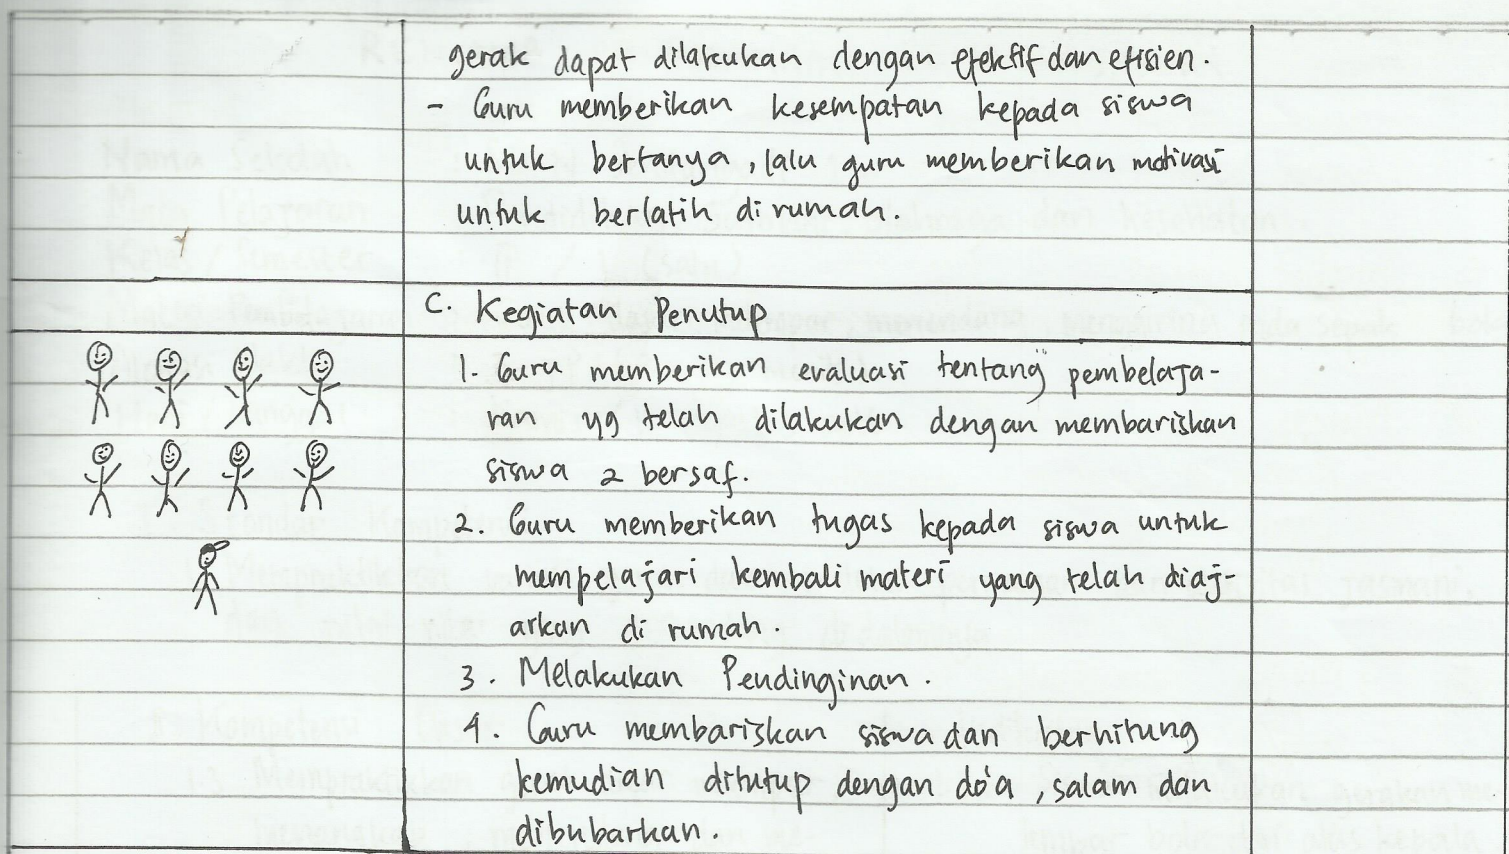 gerak dapat dilakukan dengan efektif dan efisien.
- Guru memberikan kesempatan kepada siswa
untuk bertanya, lalu guru memberikan motivasi
untuk berlatih di rumah.
C. Kegiatan Penutup
1. Guru memberikan evaluasi tentang pembelaja-
ran yg telah dilakukan dengan membariskan
siswa 2 bersaf.
2. Guru memberikan tugas kepada siswa untuk
mempelajari kembali materi yang telah diaj-
arkan di rumah.
3. Melakukan Pendinginan.
4. Guru membariskan siswa dan berhitung
kemudian ditutup dengan do'a, salam dan
dibubarkan.